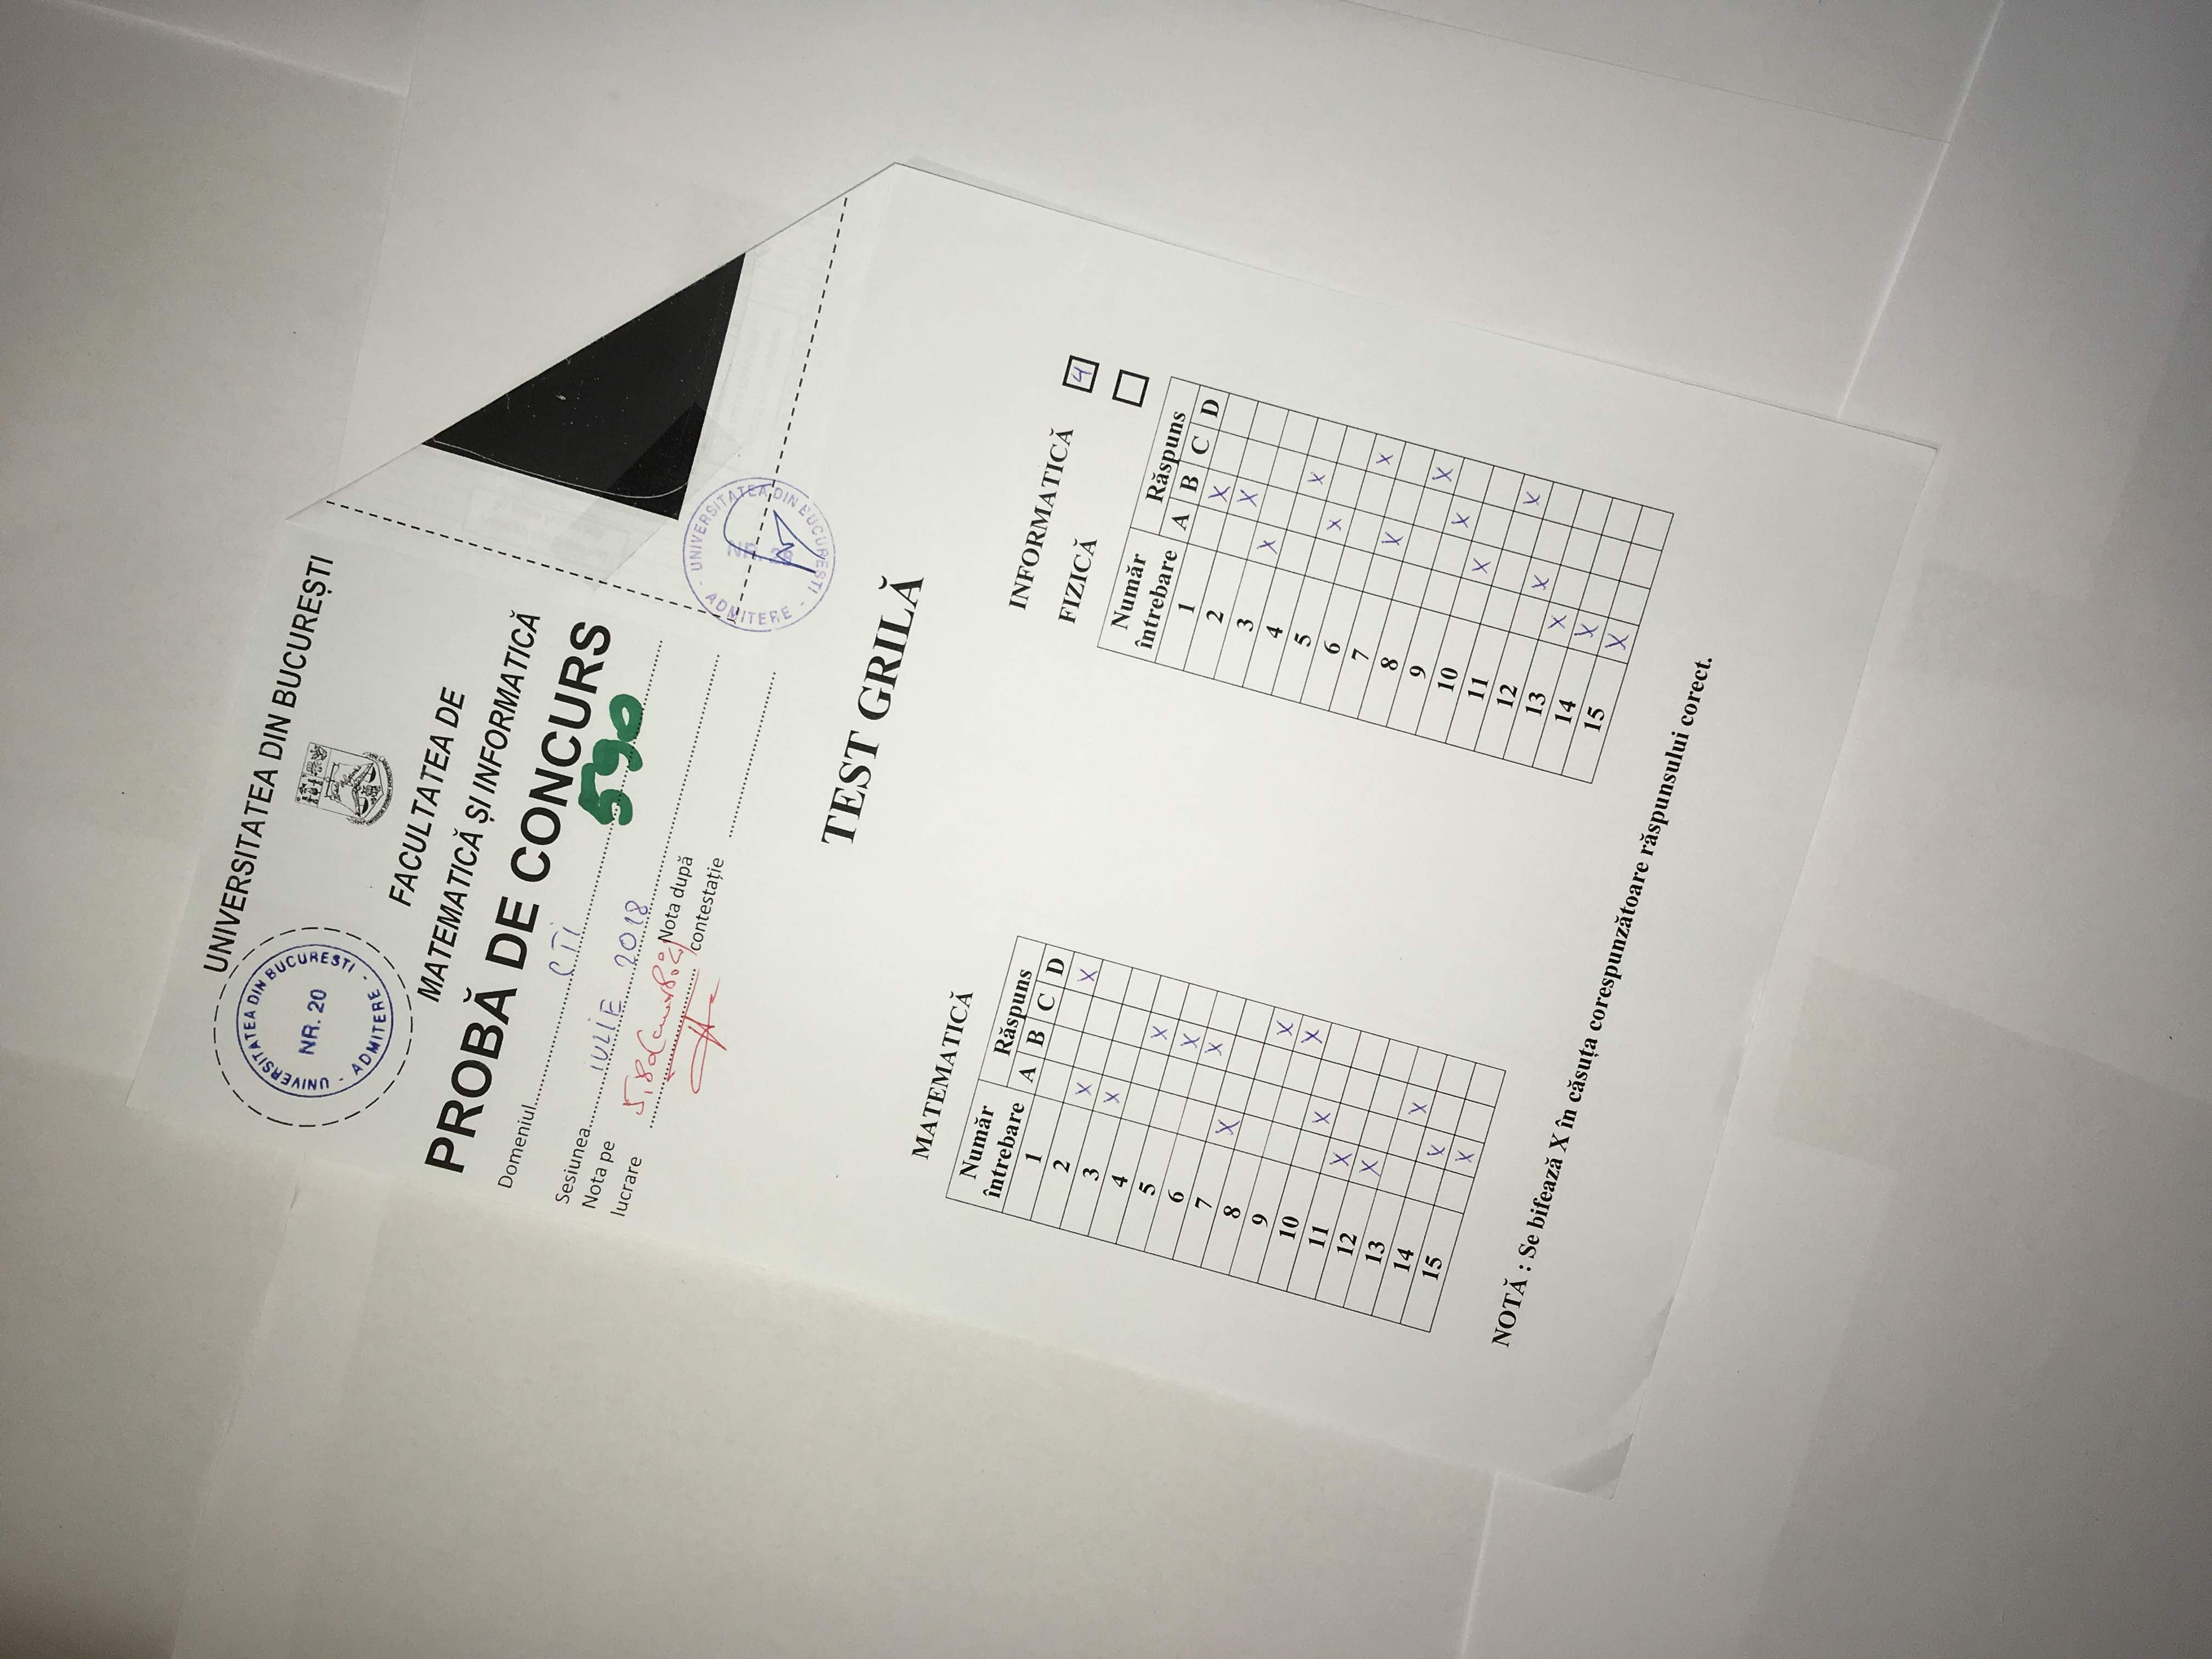 UNIVERSITATEA DIN BUCUREȘTI
UNIVERSITATEA DIN BUCURESTI - ADMITERE -
NR. 20
FACULTATEA DE
MATEMATICĂ ȘI INFORMATICĂ
PROBĂ DE CONCURS
Domeniul CTI
590
Sesiunea IULIE 2018
Nota pe
lucrare 5,80
Nota după
contestație
UNIVERSITATEA DIN BUCURESTI - ADMITERE -
TEST GRILĂ
MATEMATICĂ
Număr
întrebare
Răspuns
A B C D
1 X
2 X
3 X
4 X
5 X
6 X
7 X
8 X
9 X
10 X
11 X
12 X
13 X
14 X
15 X
INFORMATICĂ 4
FIZICĂ
Număr
întrebare
Răspuns
A B C D
1 X
2 X
3 X
4 X
5 X
6 X
7 X
8 X
9 X
10 X
11 X
12 X
13 X
14 X
15 X
NOTĂ : Se bifează X în căsuța corespunzătoare răspunsului corect.